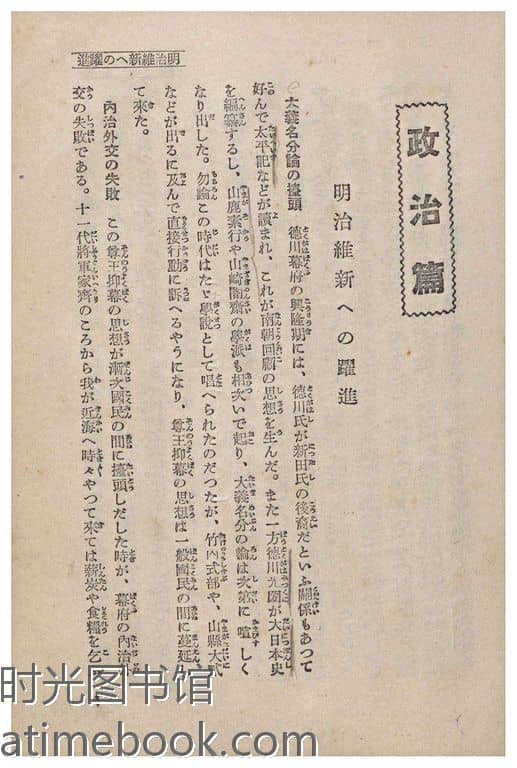 政治篇
明治維新への躍進
大義名分論の擡頭 德川幕府の興隆期には、德川氏が新田氏の後裔だといふ關係もあつて
好んで太平記などが讀まれ、これが南朝回顧の思想を生んだ。また一方德川光圀が大日本史
を編纂するし、山鹿素行や山崎闇齋の學派も相次いで起り、大義名分の論は次第に喧しく
なり出した。勿論この時代はたゞ學說として唱へられたのだつたが、竹內式部や、山縣大貳
などが出るに及んで直接行動に訴へるやうになり、尊王抑幕の思想は一般國民の間に蔓延し
て來た。
內治外交の失敗 この尊王抑幕の思想が漸次國民の間に擡頭しだした時が、幕府の內治外
交の失敗である。十一代將軍家齊のころから我が近海へ時々やつて來ては薪炭や食糧を乞
明治維新への躍進
时光图书馆
atimebook.com